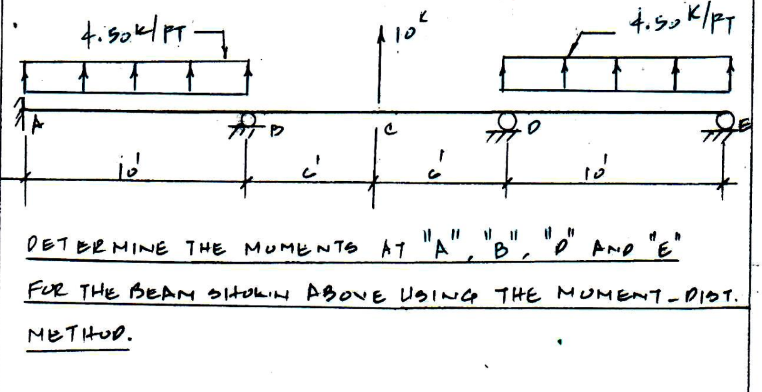 4.50 K/FT
10K
4.50 K/FT
A
B
C
D
E
10'
6'
6'
10'
DETERMINE THE MOMENTS AT "A", "B", "D" AND "E"
FOR THE BEAM SHOWN ABOVE USING THE MOMENT-DIST.
METHOD.